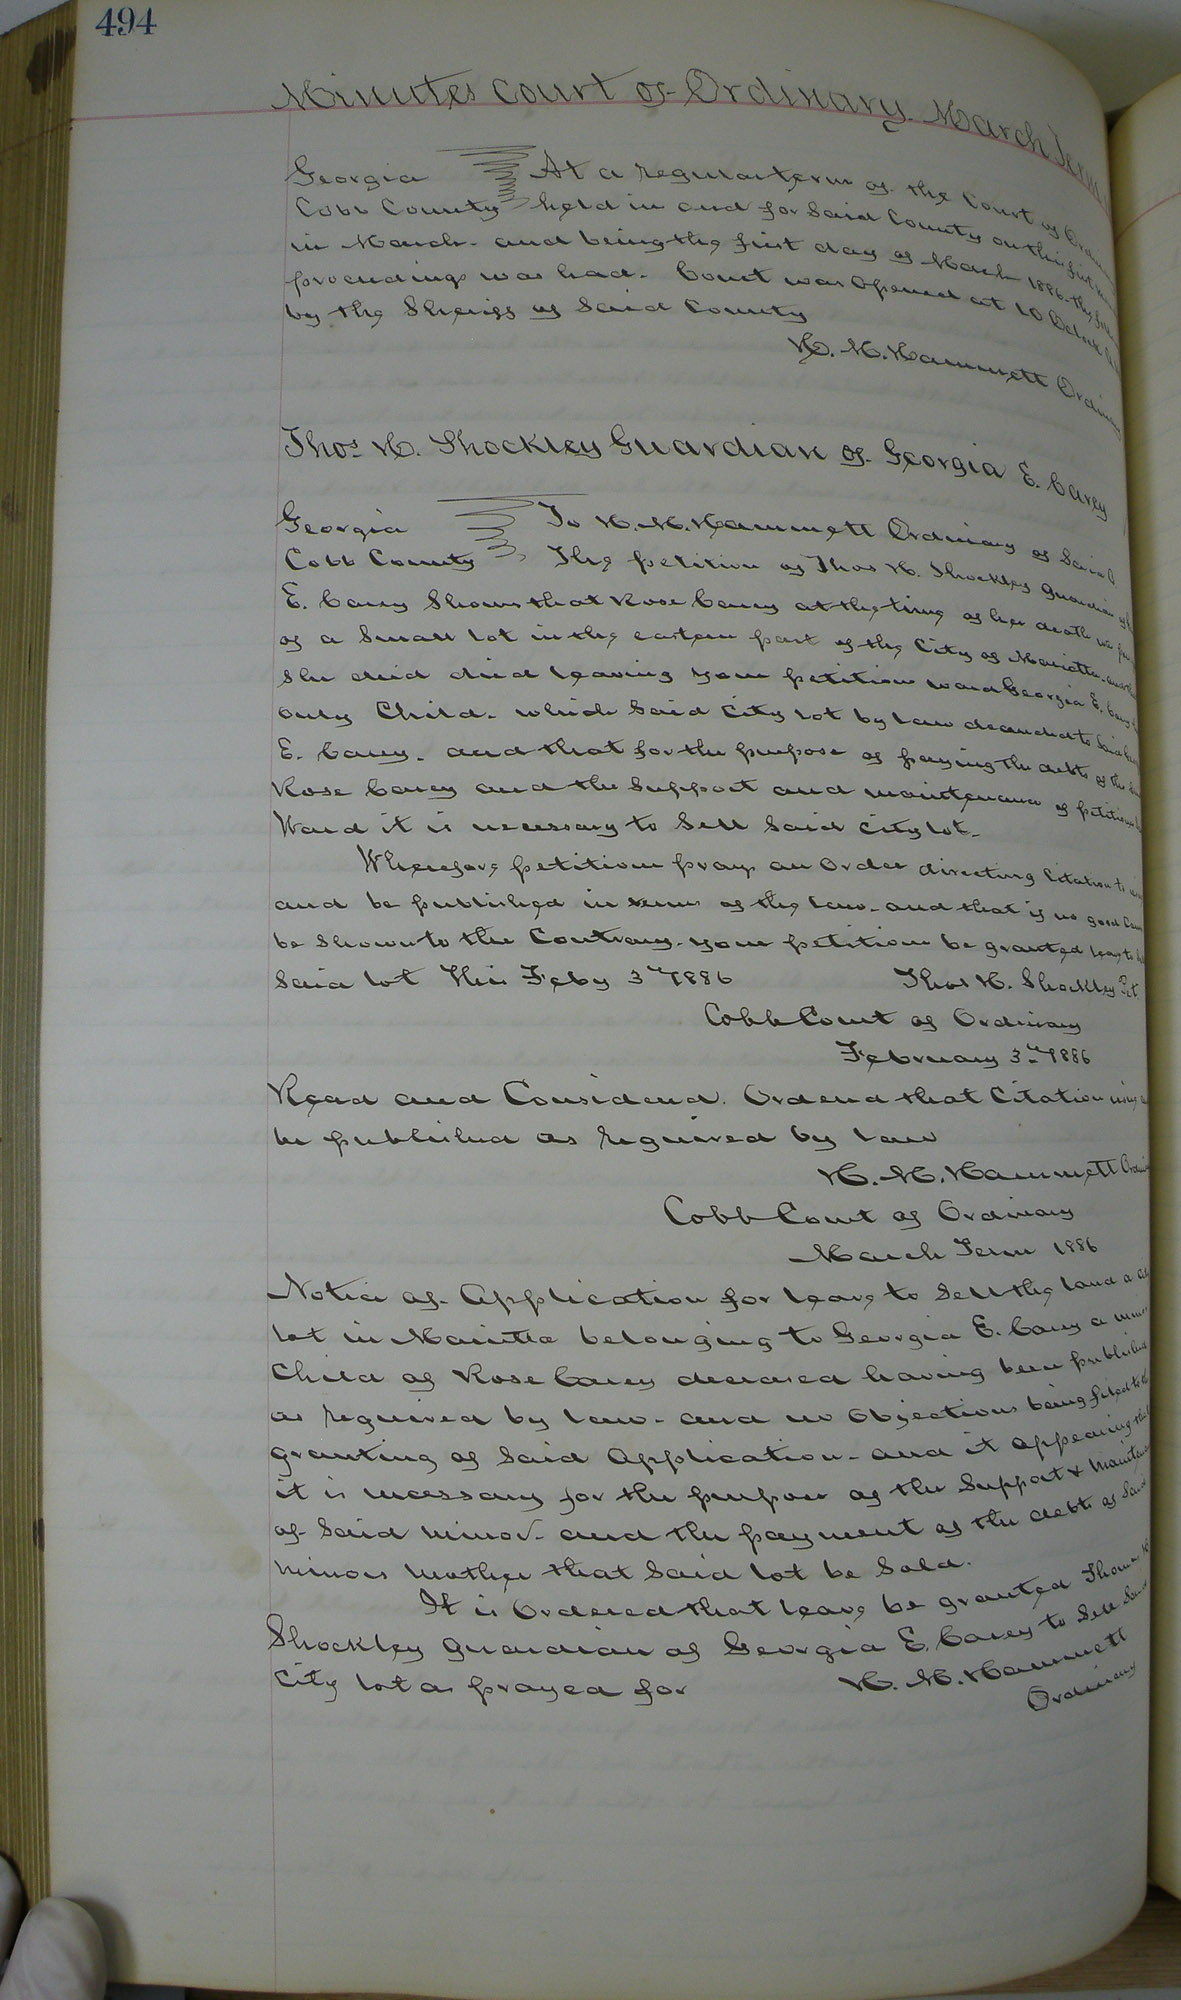 494
Minutes Court of Ordinary March Term
Georgia At a regular term of the Court of
Cobb County held in and for Said County on this first
in March. and being the first day of March 1886. the
proceedings was had. Court was Opened at 10 Oclock
by the Sheriff of Said County
H. M. Hammett
Thos H. Shockley Guardian of Georgia E. Carey
Georgia To H. M. Hammett Ordinary of Said
Cobb County The petition of Thos H. Shockley Guardian of
E. Carey Shows that Rose Carey at the time of her death was
of a Small lot in the eastern part of the City of Marietta.
She died leaving your petition ward Georgia E. Carey
only Child. which Said City lot by law decended to
E. Carey. and that for the purpose of paying the debts of the
Rose Carey and the Support and maintenance of petitioners
Ward it is necessary to Sell Said City lot.
Wherefore petitioner prays an Order directing Citation to
and be published in terms of the law. and that if no good
be Shown to the Contrary. your petitioner be granted leave to
Said lot This Feby 3rd 1886 Thos H. Shockley Pet
Cobb Court of Ordinary
February 3rd 1886
Read and Considered. Ordered that Citation
be published as required by law
H. M. Hammett
Cobb Court of Ordinary
March Term 1886
Notice of Application for leave to Sell the land a
lot in Marietta belonging to Georgia E. Carey a minor
Child of Rose Carey deceased having been published
as required by law. and no Objections being filed to the
granting of Said Application. and it appearing that
it is necessary for the purpose of the Support &
of Said minor. and the payment of the debts of Said
minors mother that Said lot be Sold.
It is Ordered that leave be granted
Shockley Guardian of Georgia E. Carey to Sell Said
City lot as prayed for H. M. Hammett
Ordinary